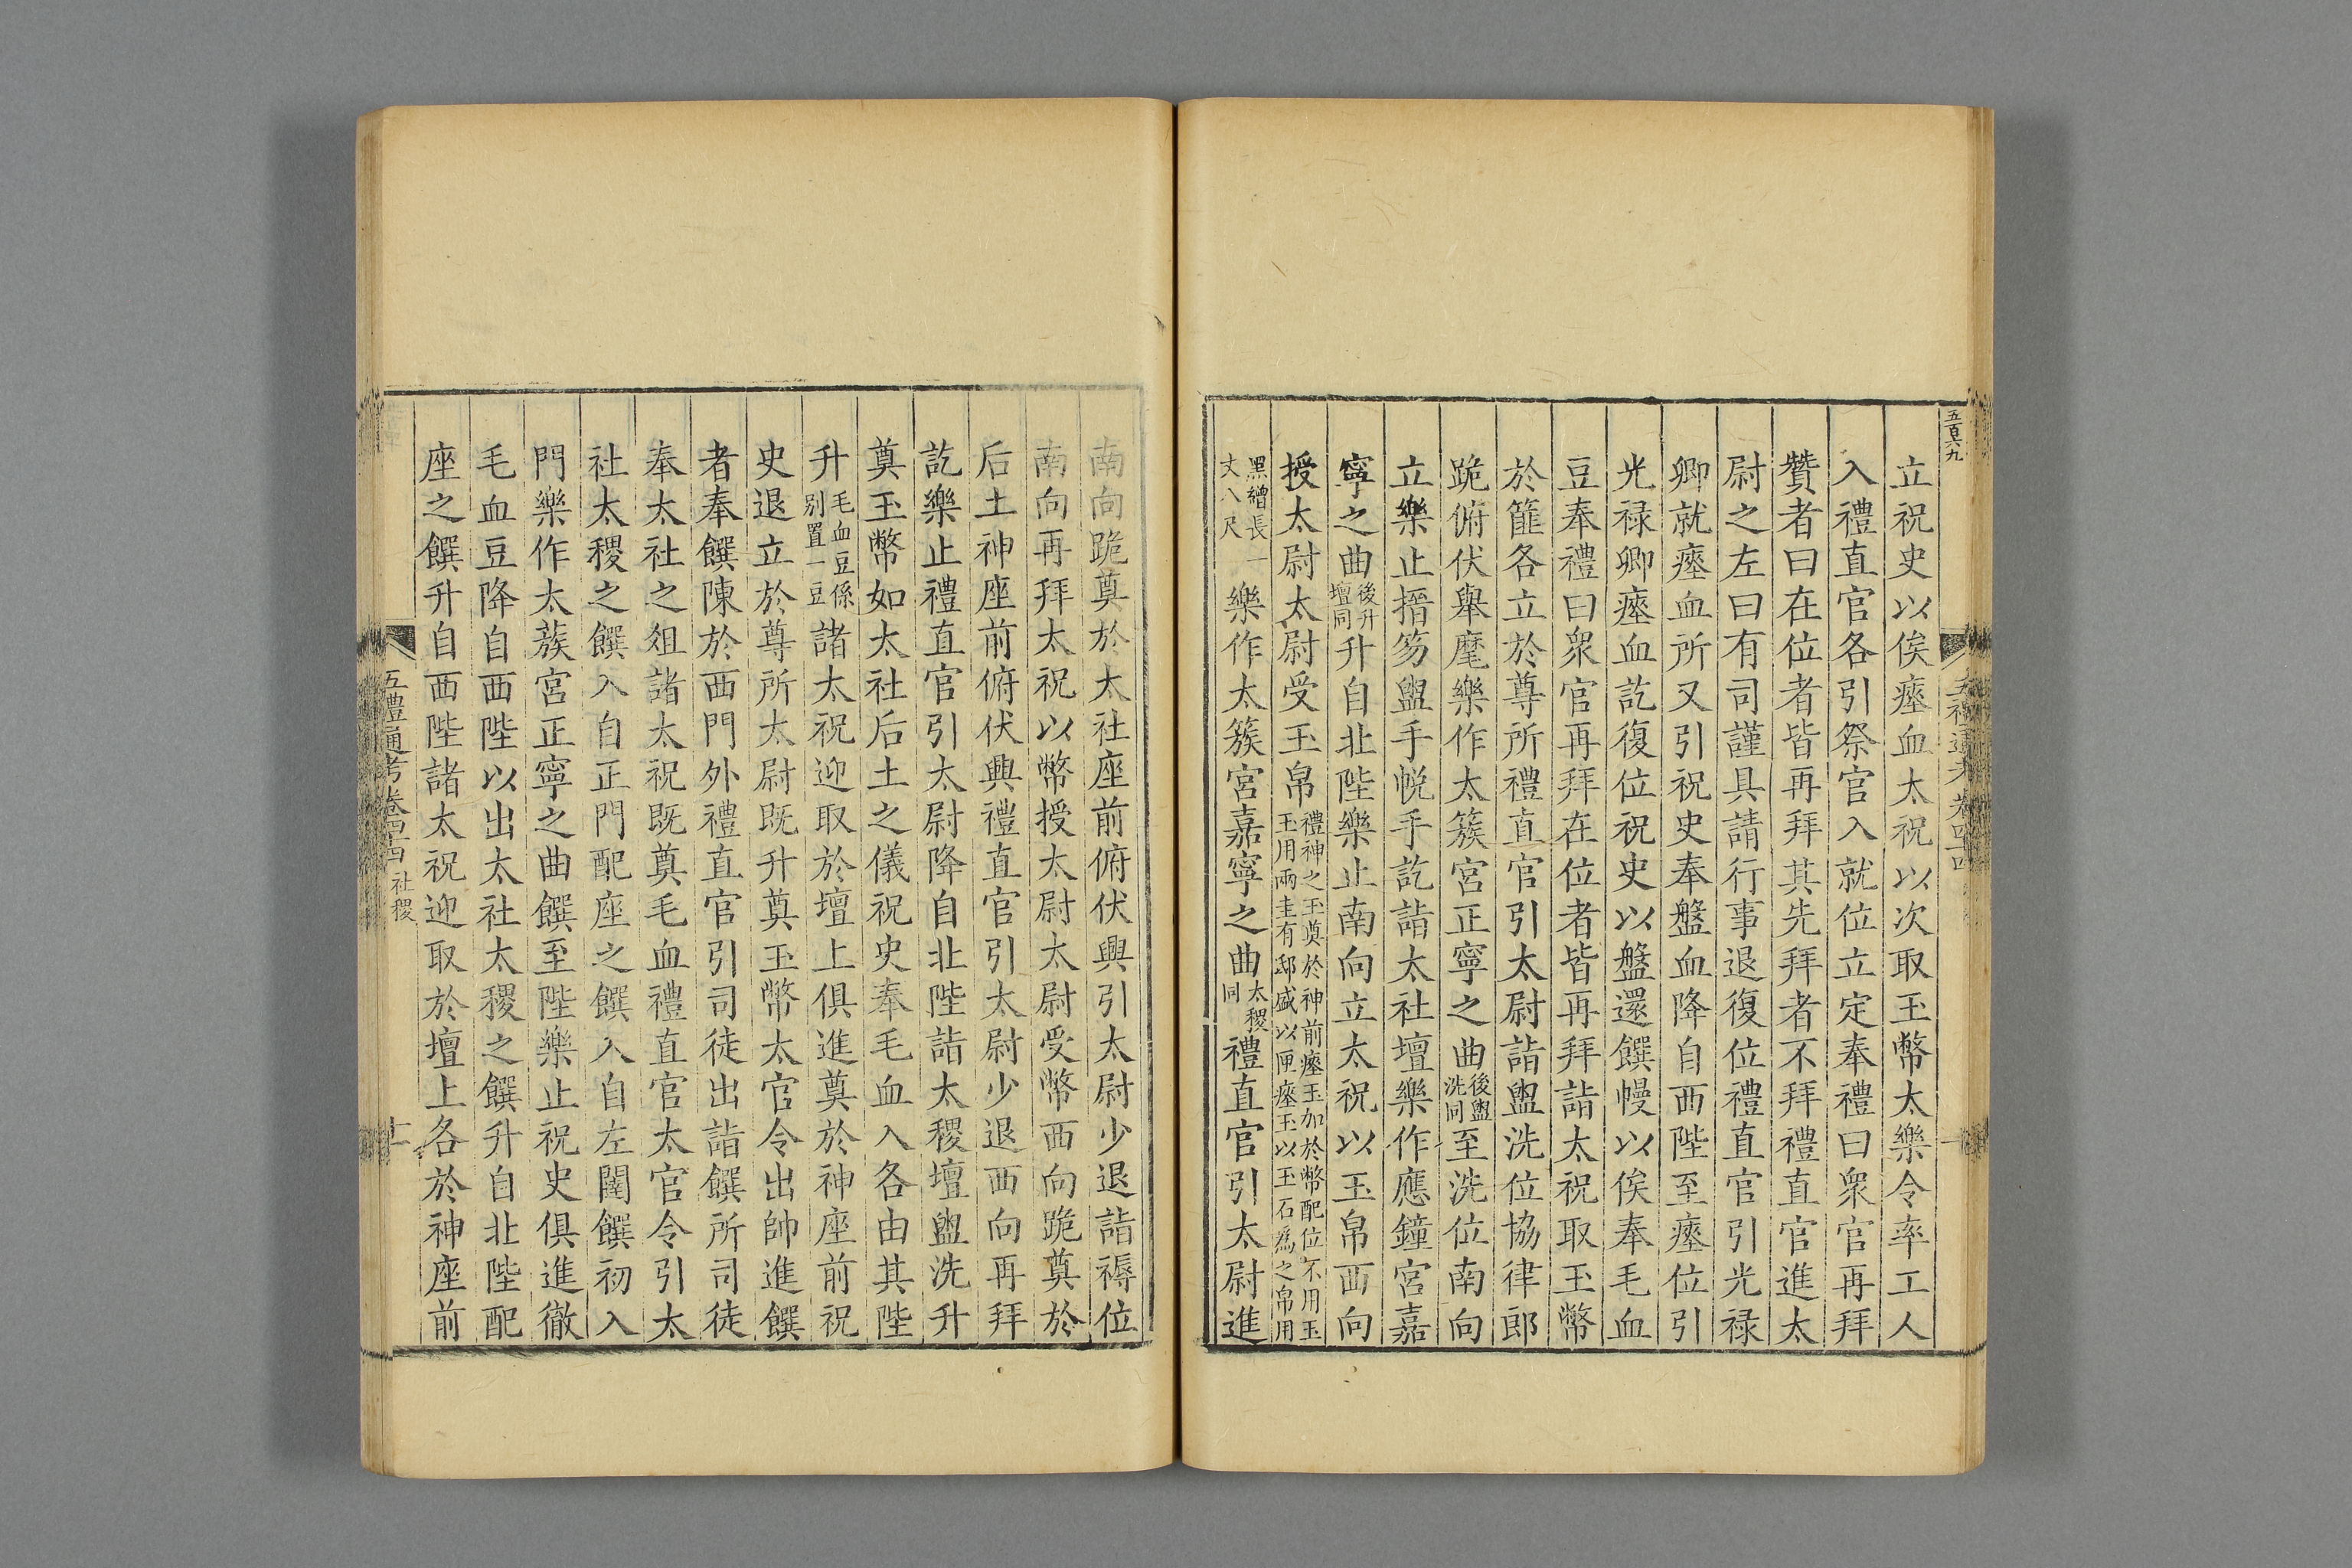 五百六九
立祝史以俟瘞血太祝以次取玉幣太樂令率工人
入禮直官各引祭官入就位立定奉禮曰衆官再拜
贊者曰在位者皆再拜其先拜者不拜禮直官進太
尉之左曰有司謹具請行事退復位禮直官引光禄
卿就瘞血所又引祝史奉盤血降自西陛至瘞位引
光禄卿瘞血訖復位祝史以盤還饌幔以俟奉毛血
豆奉禮曰衆官再拜在位者皆再拜詣太祝取玉幣
於篚各立於尊所禮直官引太尉詣盥洗位協律郎
跪俯伏舉麾樂作太簇宮正寧之曲後盥洗同至洗位南向
立樂止搢笏盥手帨手訖詣太社壇樂作應鐘宮嘉
寧之曲後升壇同升自北陛樂止南向立太祝以玉帛西向
授太尉太尉受玉帛禮神之玉奠於神前瘞玉加於幣配位不用玉玉用兩圭有邸盛以匣瘞玉以玉石爲之帛用
黑繒長一丈八尺樂作太簇宮嘉寧之曲太稷同禮直官引太尉進
南向跪奠於太社座前俯伏興引太尉少退詣褥位
南向再拜太祝以幣授太尉太尉受幣西向跪奠於
后土神座前俯伏興禮直官引太尉少退西向再拜
訖樂止禮直官引太尉降自北陛詣太稷壇盥洗升
奠玉幣如太社后土之儀祝史奉毛血入各由其陛
升毛血豆係别置一豆諸太祝迎取於壇上俱進奠於神座前祝
史退立於尊所太尉既升奠玉幣太官令出帥進饌
者奉饌陳於西門外禮直官引司徒出詣饌所司徒
奉太社之俎諸太祝既奠毛血禮直官太官令引太
社太稷之饌入自正門配座之饌入自左闥饌初入
門樂作太蔟宮正寧之曲饌至陛樂止祝史俱進徹
毛血豆降自西陛以出太社太稷之饌升自北陛配
座之饌升自西陛諸太祝迎取於壇上各於神座前
五禮通考卷四十四 社稷 十一